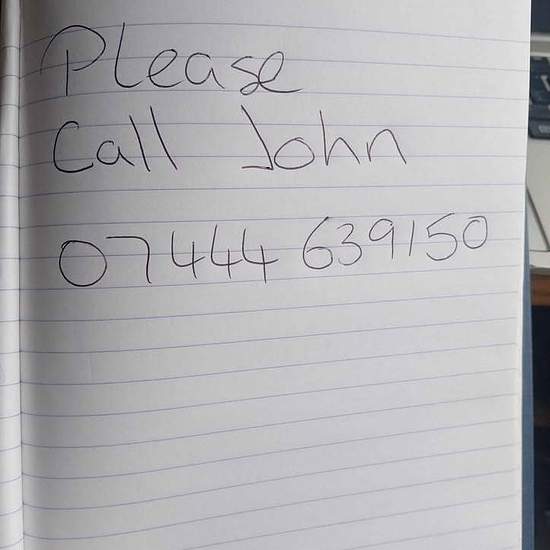 Please
Call John
07444 639150